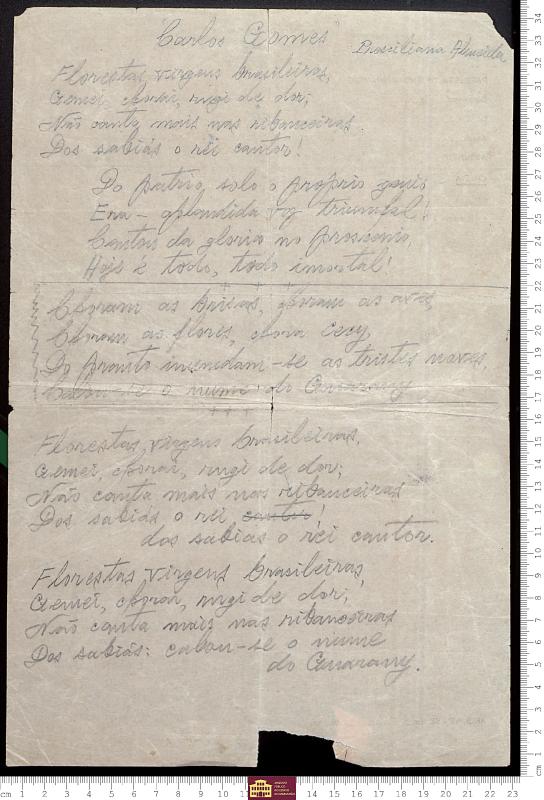 "Carlos Gomes"
Brasiliana Almeida
Florestas virgens brasileiras,
Gemei, chorai, rugi de dor;
Não canta mais nas ribanceiras
Dos sabiás o rei cantor!
Do patrio, solo o próprio genio
Era - splendida voz triumphal!
Cantou da gloria no proscenio,
Hoje é todo, todo imortal!
Choram as brisas, choram as aves,
Choram as flores, chora Cecy,
Do pranto inundam-se as tristes naves,
Calou-se o nume do Guarany
+ + +
Florestas, virgens brasileiras,
Gemei, chorai, rugi de dor;
Não canta mais nas ribanceiras
Dos sabiás o rei cantor!
dos sabias o rei cantor.
Florestas virgens brasileiras,
Gemei, chorai, rugi de dor;
Não canta mais nas ribanceiras
Dos sabiás: calou-se o nume
do Guarany.